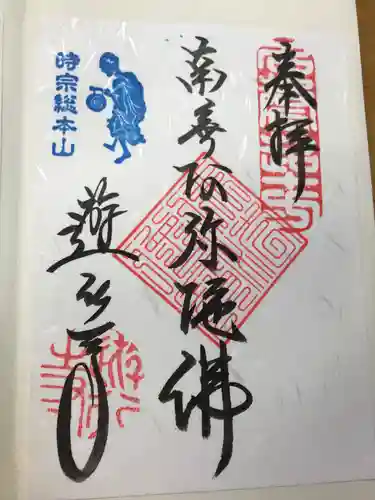 奉拝
南無阿弥陀佛
時宗総本山
遊行寺